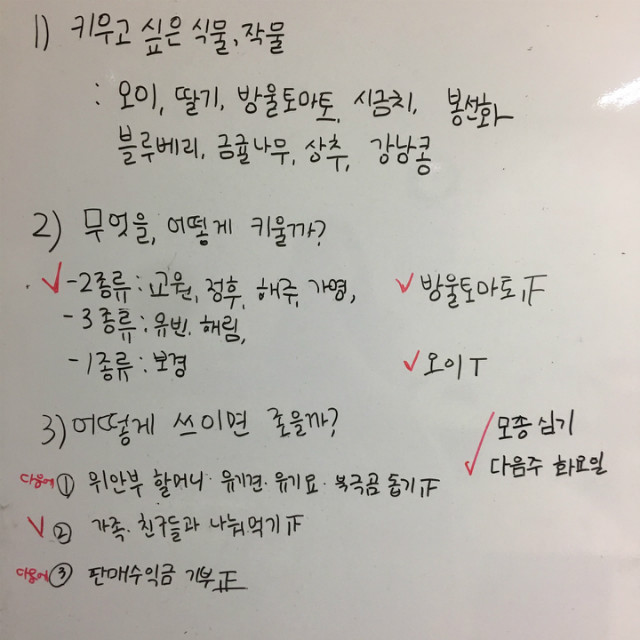 1) 키우고 싶은 식물, 작물
: 오이, 딸기, 방울토마토, 시금치, 봉선화
블루베리, 금귤나무, 상추, 강낭콩
2) 무엇을, 어떻게 키울까?
-2종류 : 교원, 정후, 해주, 가영,
-3종류 : 유빈, 해림,
-1종류 : 보경
방울토마토, 正
오이 T
3) 어떻게 쓰이면 좋을까?
모종 심기
다음주 화요일
다음에 ① 위안부 할머니·유기견·유기묘·북극곰 돕기 正
② 가족·친구들과 나눠먹기 正
다음에 ③ 판매수익금 기부 正